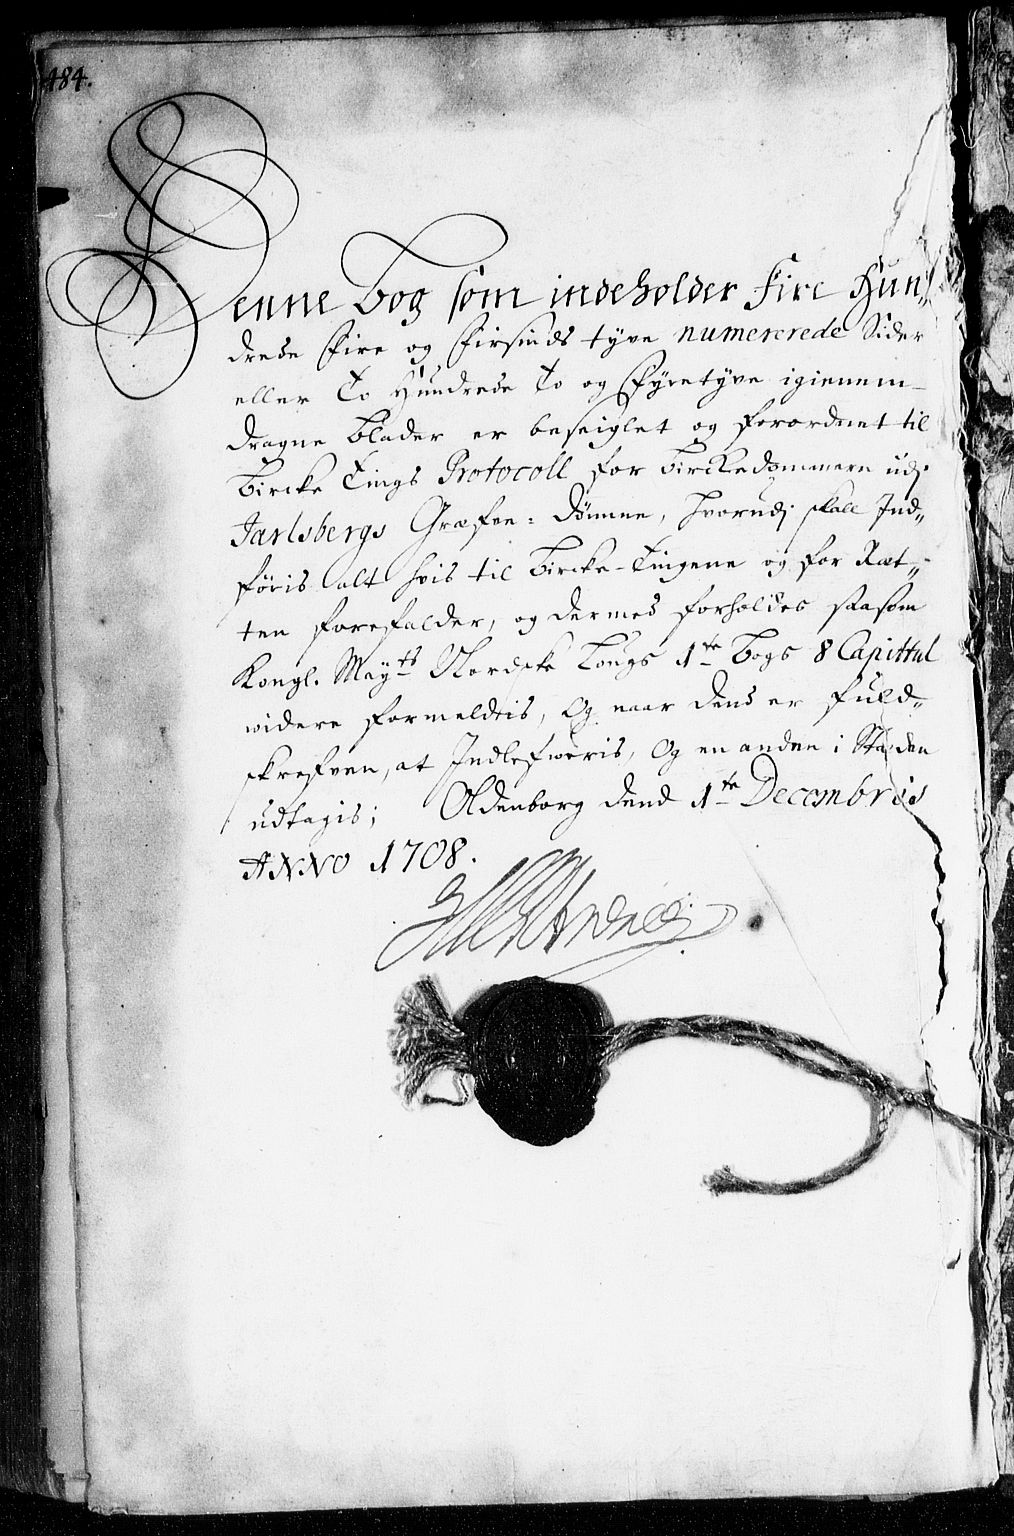 484.
Denne Bog som indeholder Fire Hun„
drede Fire og Firsinds tyve numererede Sider
eller To Hundrede To og Fyretyve igienem-
dragne Blader er beseiglet og forordnet til
Bircke Tings Protocoll for Birckedommern udj
Jarlsbergs Græfve= Dømme, hvorudj skall Ind„
føris alt hvis til Bircke-Tingene og for Ræt„
ten forefalder, og dermed forholdes saasom
Kongl. Mayts Nordske Lougs 1te Bogs 8 Capittul
widere formeldtis, Og naar dend er fuld„
skrefven, at Indlefweris, Og en anden i Staden
udtagis; Oldenborg dend 1te Decembris
ANNO 1708.